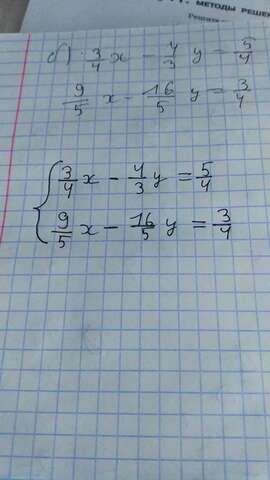 МЕТОДЫ РЕШЕ
Решите
б) 3/4 x - 4/3 y = 5/4
9/5 x - 16/5 y = 3/4
{ 3/4 x - 4/3 y = 5/4
9/5 x - 16/5 y = 3/4